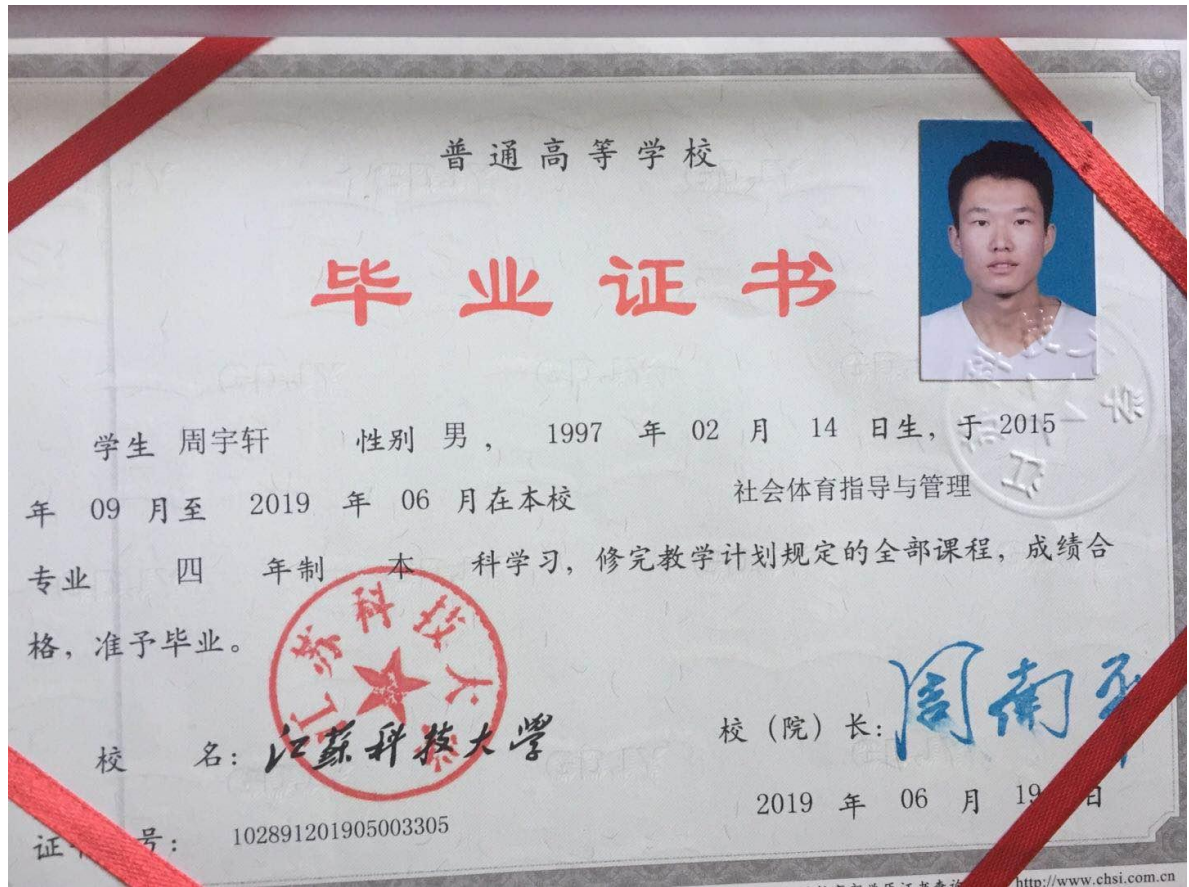 普通高等学校
毕业证书
学生 周宇轩 性别 男， 1997 年 02 月 14 日生，于 2015
年 09 月至 2019 年 06 月在本校 社会体育指导与管理
专业 四 年制 本 科学习，修完教学计划规定的全部课程，成绩合
格，准予毕业。
江苏科技大学
校 名：江苏科技大学
校（院）长：周南平
2019 年 06 月 19 日
证 号：102891201905003305
http://www.chsi.com.cn